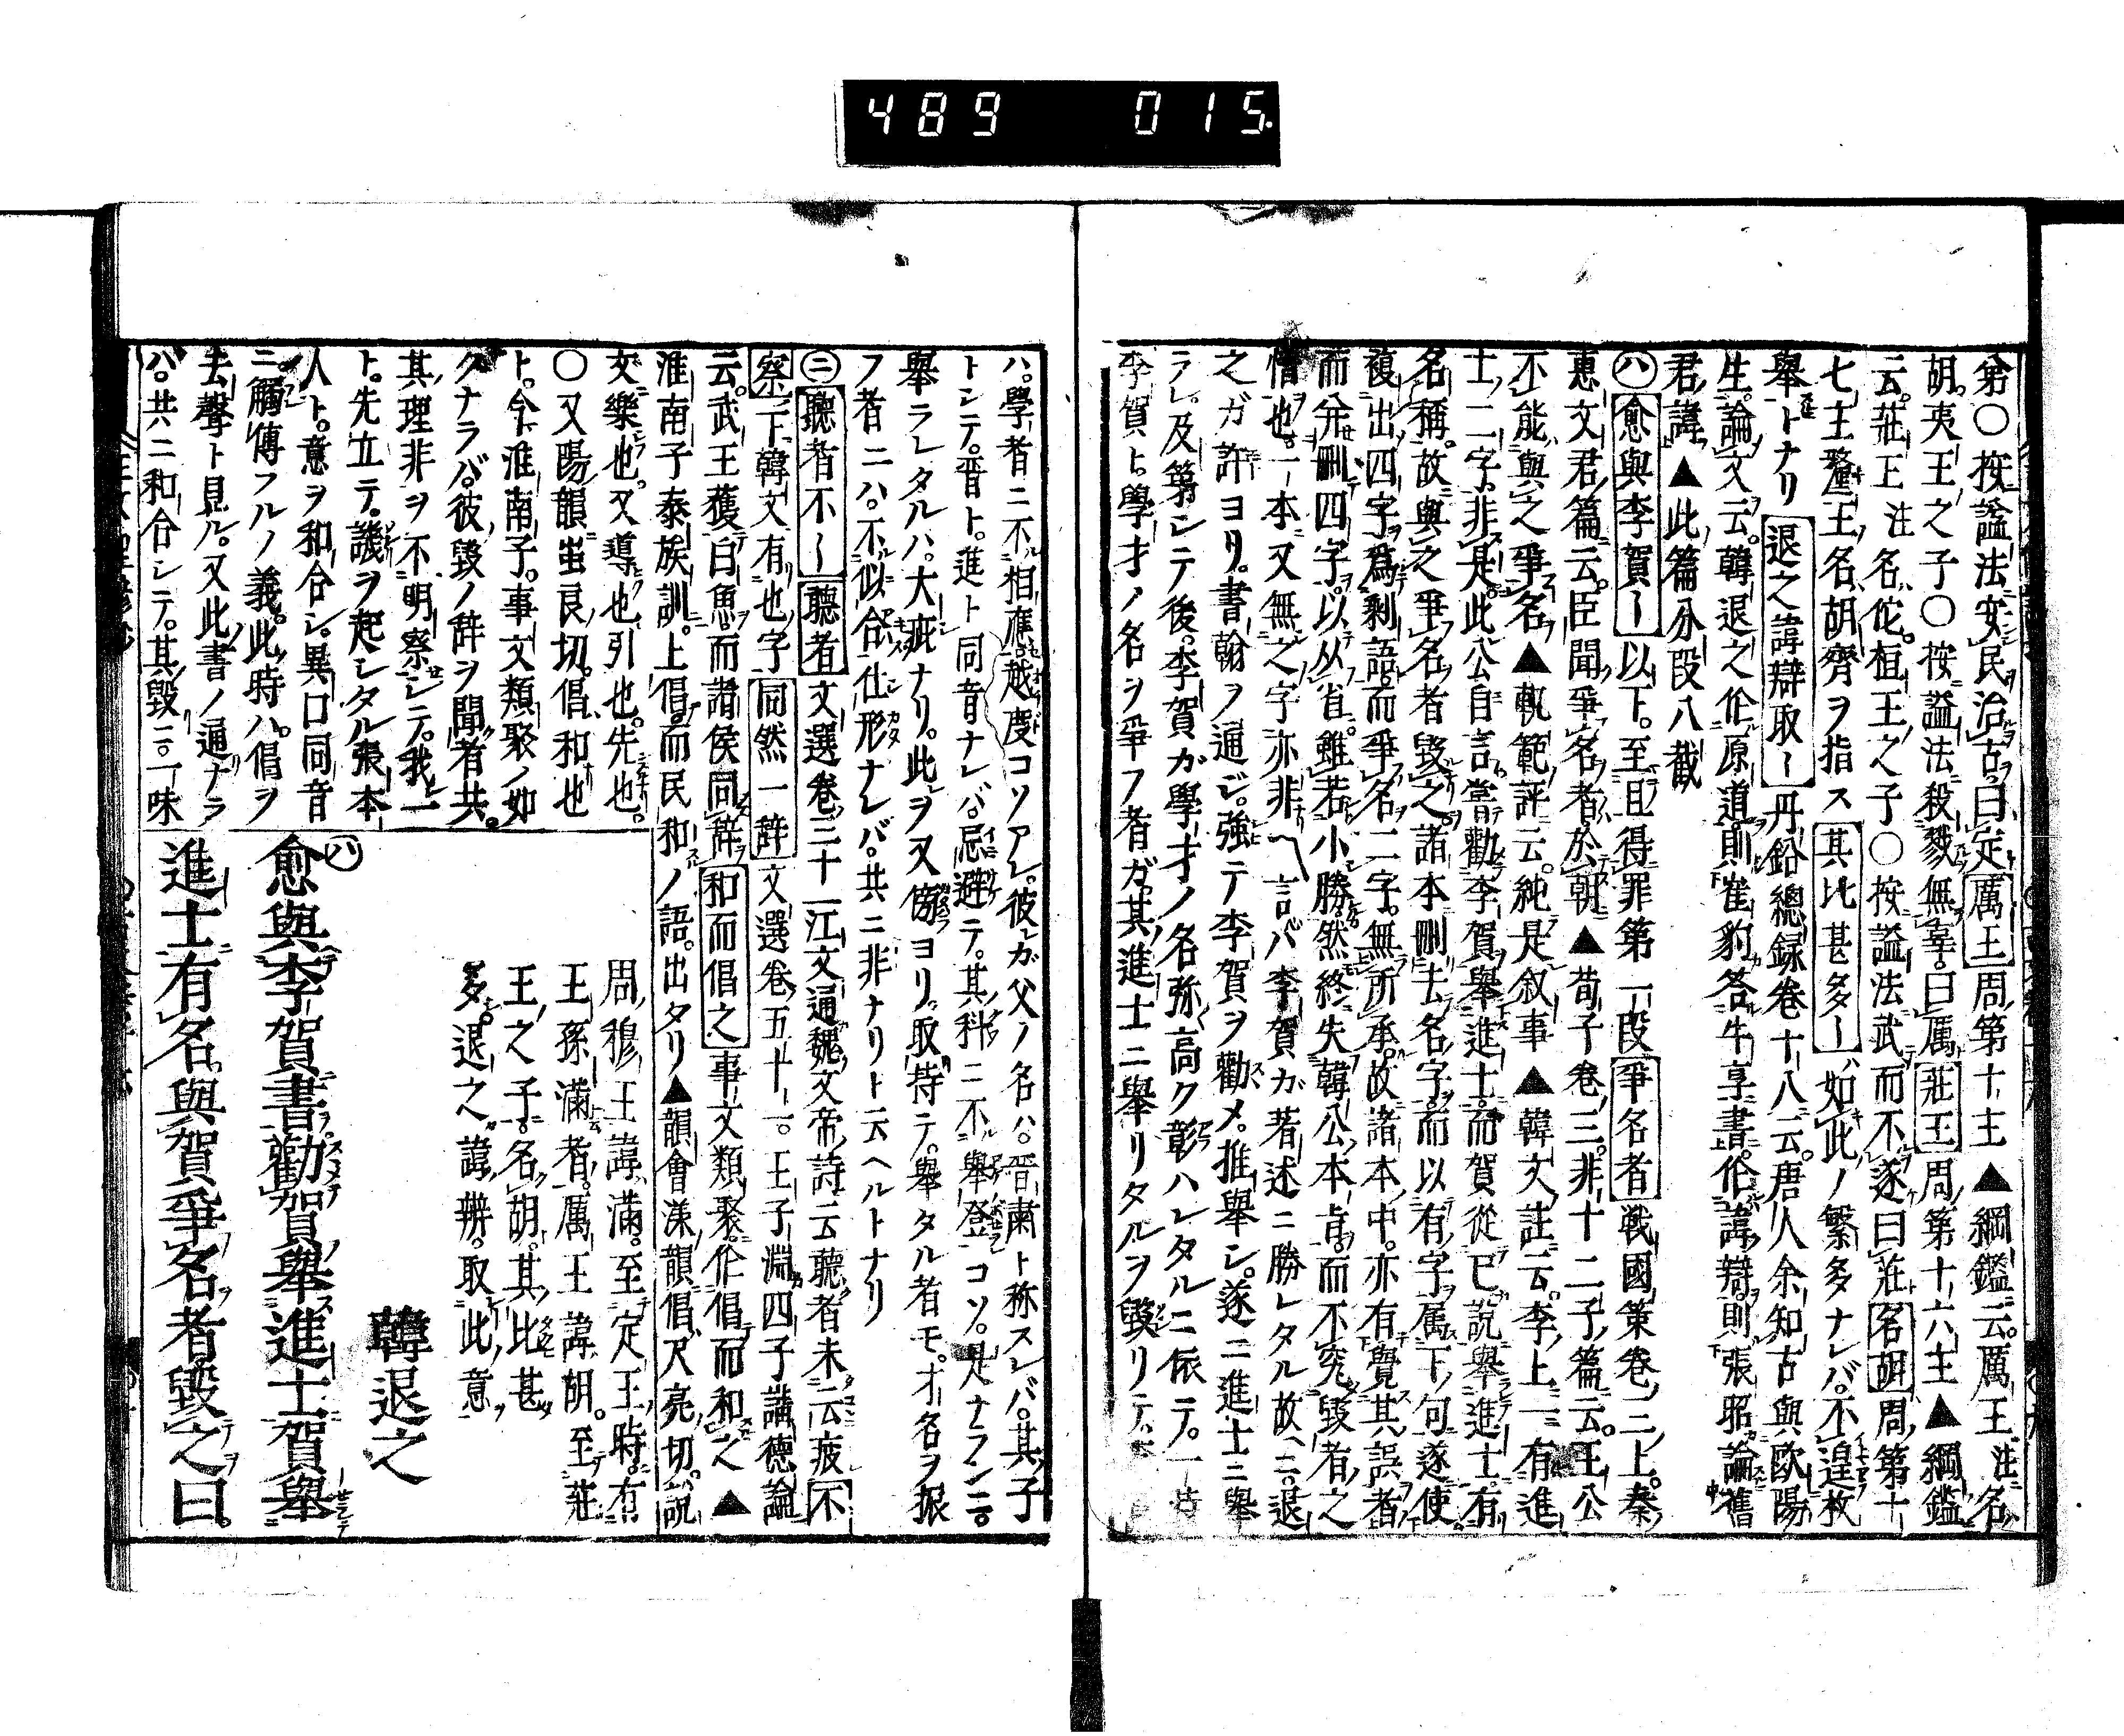 489 015
第〇按謚法安民治古曰定厲王周第十主▲綱鑑云厲王注名
胡夷王之子〇按謚法殺戮無辜曰厲莊王周第十六主▲綱鑑
云莊王注名佗桓王之子〇按謚法武而不遂曰莊名胡周第十
七主釐王名胡齊ヲ指ス其比甚多ー如此ノ繁多ナレバ不遑枚
舉トナリ退之諱辯取ー丹鉛總録卷十八云唐人余知古與歐陽
生論文云韓退之作原道則崔豹答牛享書作諱辯則張昭論舊
君諱▲此篇分段八截
八愈與李賀ー以下至且得罪第一段爭名者戦國策卷三上秦
惠文君篇云臣聞爭名者於朝▲荀子卷三非十二子篇云王公
不能與之爭名▲軌範評云純是叙事▲韓文註云李上一有進
士二字非是此公自言嘗勸李賀舉進士而賀從已説舉進士有
名稱故與之爭名者毀之諸本刪去名字而以有字属下句遂使
複出四字爲剩語而爭名二字無所承故諸本中亦有覺其誤者
而并刪四字以从省雖若小勝然終失韓公本旨而不究毀者之
憎也一本又無之字亦非ヘ言バ李賀ガ著述ニ勝レタル故ニ退
之ガ許ヨリ書翰ヲ通ジ強テ李賀ヲ勸メ推舉シ遂ニ進士ニ舉
ラレ及第シテ後李賀ガ學才ノ名弥高ク彰ハレタルニ依テ一時
李賀ト學才ノ名ヲ爭フ者ガ其進士ニ舉リタルヲ毀リテ
ハ學者ニ不相應越度コソアレ彼ガ父ノ名ハ晋肅ト称スレバ其子
トシテ晋ト進ト同音ナレバ忌避テ其科ニ不舉登コソ是ナランニ
舉ラレタルハ大疵ナリ此ヲ又傍ヨリ取持テ舉タル者モ才名ヲ振
フ者ニハ不似合仕形ナレバ共ニ非ナリト云ヘルトナリ
二聽者不ー聽者文選卷三十一江文通魏文帝詩云聽者未云疲不
察下韓文有也字同然一辞文選卷五十一王子淵四子講德論
云武王獲白魚而諸侯同辞和而倡之事文類聚作倡而和之▲
淮南子泰族訓上倡而民和ノ語出タリ▲韻會漾韻倡尺亮切説
文樂也又導也引也先也
〇又陽韻蚩良切倡和也
ト今淮南子事文類聚ノ如
クナラバ彼毀ノ辞ヲ聞者共
其理非ヲ不明察シテ我一
ト先立テ譏ヲ起シタル張本
人ト意ヲ和合シ異口同音
ニ觸傳フルノ義此時ハ倡ヲ
去聲ト見ル又此書ノ通ナラ
ハ共ニ和合シテ其毀ニ一味
周穆王諱滿至定王時有
王孫滿者厲王諱胡至莊
王之子名胡其比甚
多退之諱辨取此意
韓退之
八
愈與李賀書勸賀舉進士賀舉
進士有名與賀爭名者毀之曰